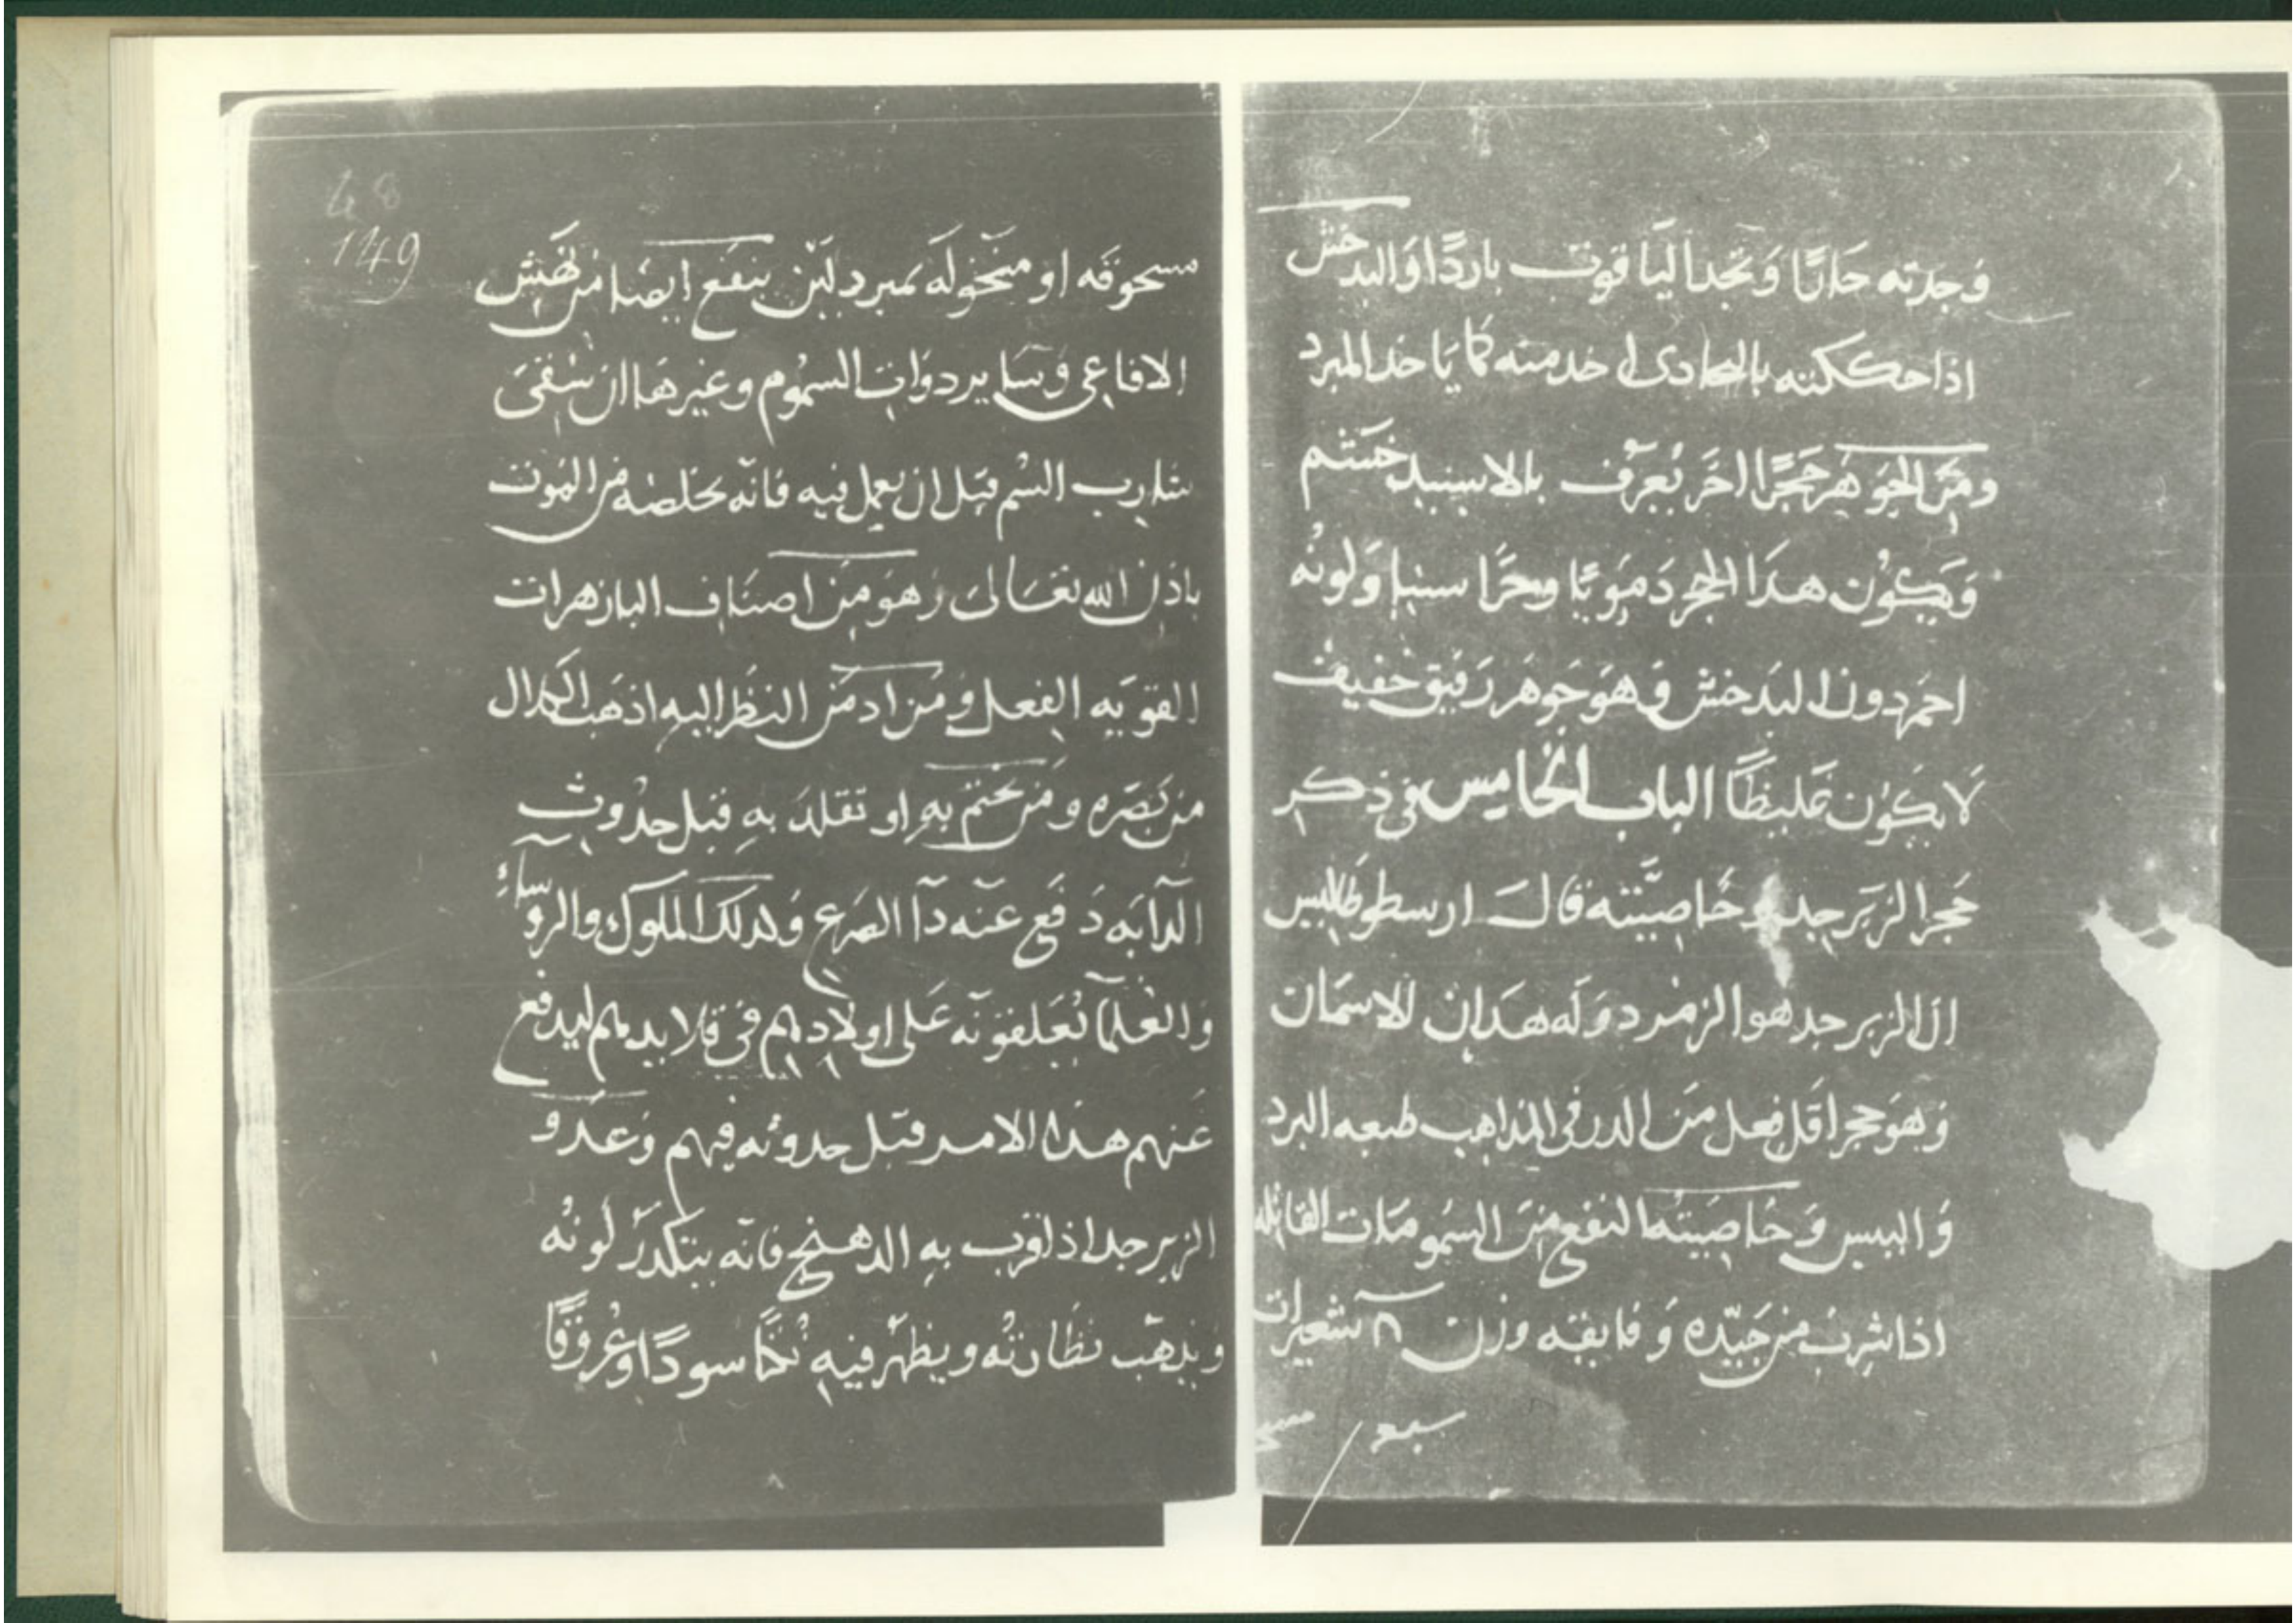 وَجدته حَارًّا وَتجدا ليَاقوت باردًا وَالبدخش
اذا حككته بالهادى اخد منه كما يَاخد المبرد
ومَن الجَوَهر حَجرًا اخَر يُعرَف بالاسبيد خشتم
وَيَكوُن هدَا الحجر دَمَويًا وبحرًا سنيا وَلونُه
احمَر دون البَدخش وَهوَ جَوهَر رَقيق خفيف
لَا يَكوُن غَليظًا البابُ الخامِس في ذكر
حَجر الزبَرجد وخَاصيَّته قالَ ارسطوطَاليس
ان الزبرجد هو الزمرد وَلَه هدَان الاسمَان
وَهوَ حجر اقَل فِعل مَن الدر في المداهب طبعه البرد
وَاليبس وَخَاصِيته النفع مِنَ السُمومَات القاتله
اذا شربَ من جَيّده وَفايقه وزن ٨ شعيرات
48
149
مسحوقه او منخوله بمبرد ليّن ينفَع ايضا من نَهش
الافاعِى وَسَاير دوَات السمُوم وغيرهَا ان سُقىَ
شارِب السُم قبَل ان يعمل فيه فانَه يخلصُه من المَوت
باذن الله تعَالىَ وَهوَ مِن اصنَاف البازهرات
القويَه الفِعل وَمَن ادمَن النظَر اليهِ اذهَب الكلال
من بَصَره وَمَن تختم بهِ او تقلدَ بهِ قبل حدُوث
الدآبَه دَفَع عَنه دآ الصَرع وَلدلك الملوك والروسآء
وَالعُلمآ يُعَلقونه عَلى اولَادِهِم في قلايدهم ليدفع
عَنهم هدا الامر قبل حدوثه فيهم وَعَدو
الزبرجد اذا قرب بهِ الدهنج فانَه يتكدرُ لَونُه
وَيذهَب نظَارتُه ويظهَر فيهِ نُكتًا سودًا وعُروقًا